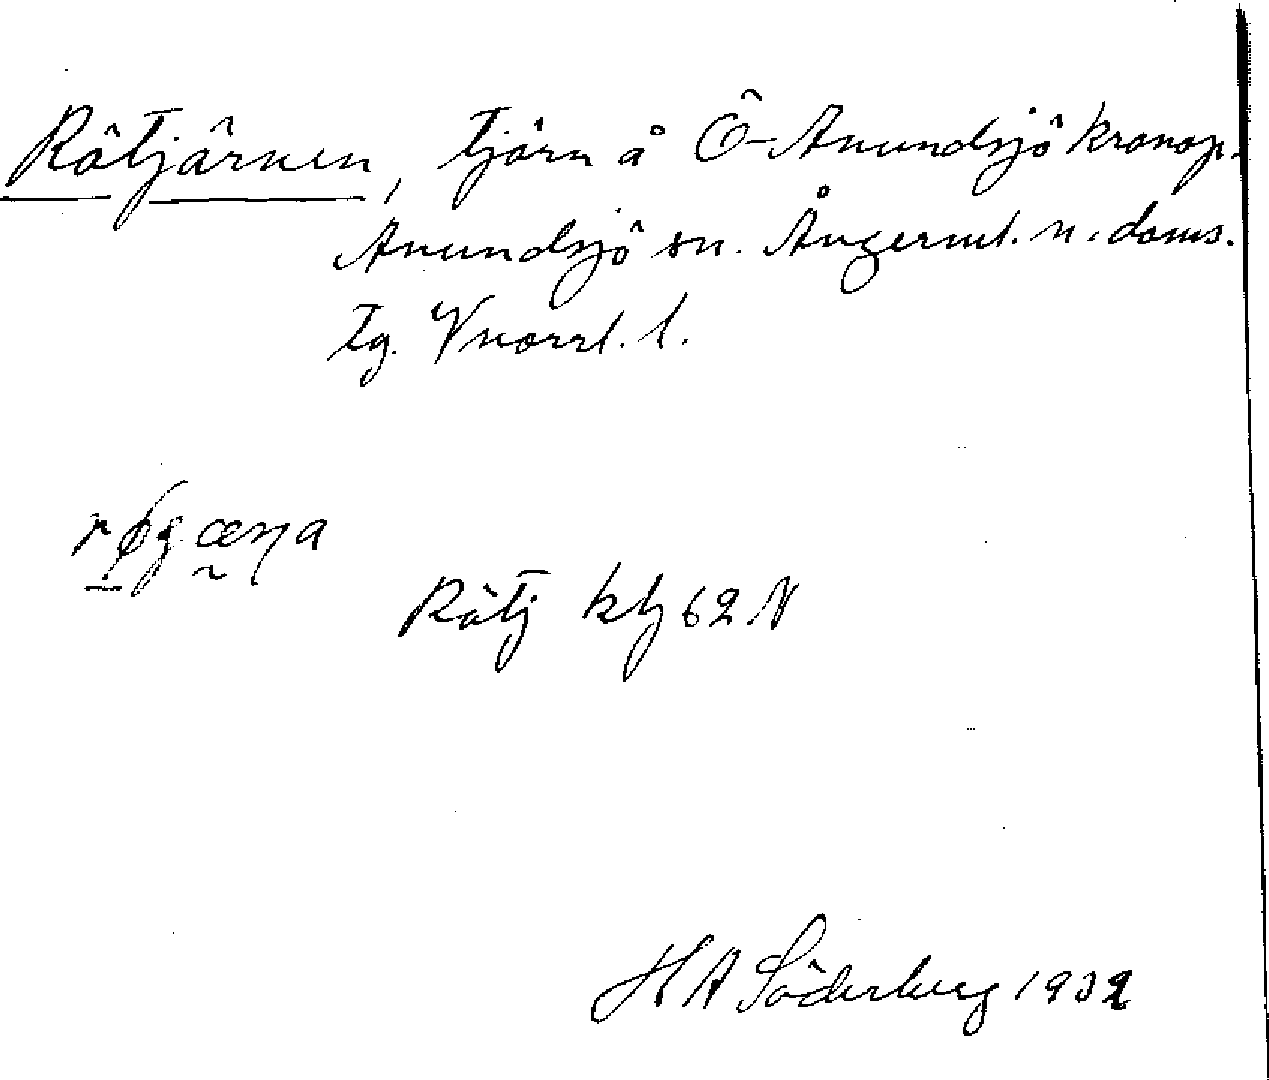 Rötjärnen, tjärn å Ö-Anundsjö kronop.
Anundsjö sn. Ångerml. n. doms.
tg. Vnorrl. l.
Rötj ktj 62 N
H A Söderberg 1932